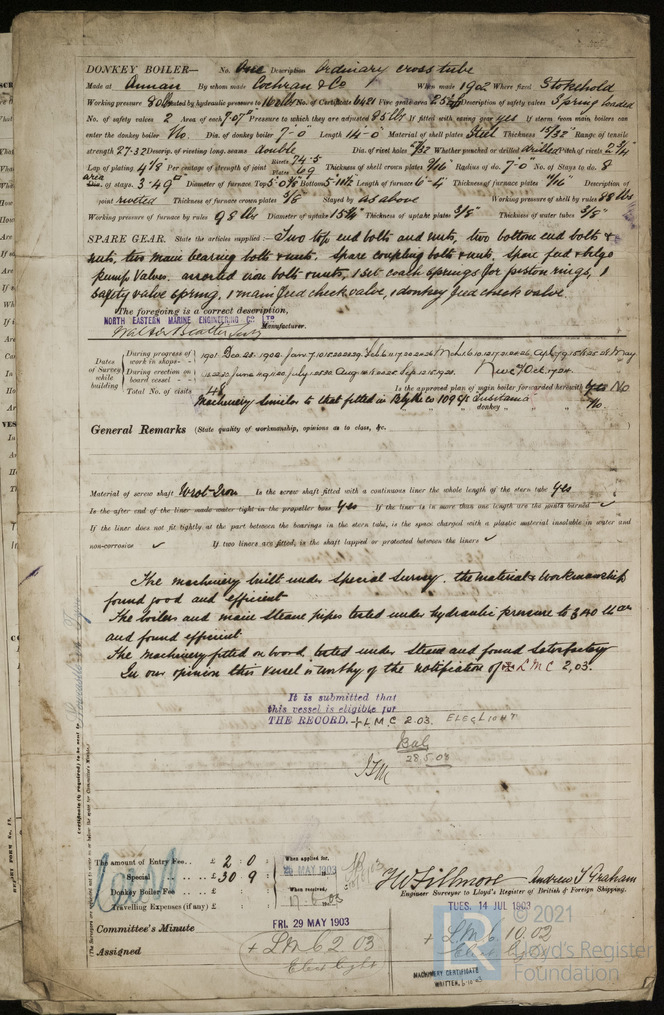 DONKEY BOILER— No. One Description Ordinary cross tube
Made at Annan By whom made Cochran & Co When made 1902 Where fixed Stokehold
Working pressure 80 lbs tested by hydraulic pressure to 160 lbs No. of Certificate 6421 Fire grate area Description of safety valves Spring loaded
No. of safety valves 2 Area of each 7.07" Pressure to which they are adjusted 85 lbs If fitted with easing gear yes If steam from main boilers can
enter the donkey boiler No. Dia. of donkey boiler 7'-0" Length 14'-0" Material of shell plates Steel Thickness 15/32" Range of tensile
strength 27-32 Descrip. of riveting long. seams double Dia. of rivet holes Whether punched or drilled drilled Pitch of rivets 2 3/4"
Lap of plating 4 1/8 Per centage of strength of joint Rivets 74.5 Plates 69 Thickness of shell crown plates 9/16" Radius of do. 7'-0" No. of Stays to do. 8
area Dia. of stays. 3.49" Diameter of furnace Top Bottom Length of furnace 6'-4" Thickness of furnace plates 11/16" Description of
joint riveted Thickness of furnace crown plates 5/8" Stayed by as above Working pressure of shell by rules 88 lbs
Working pressure of furnace by rules 98 lbs Diameter of uptake Thickness of uptake plates 3/8" Thickness of water tubes 3/8"
SPARE GEAR. State the articles supplied:— Two top end bolts and nuts, two bottom end bolts &
nuts, two main bearing bolts & nuts. spare coupling bolts & nuts. spare feed & bilge
pump valves. assorted iron bolts & nuts, 1 set coach springs for piston rings, 1
safety valve spring, 1 main feed check valve, 1 donkey feed check valve
The foregoing is a correct description,
NORTH EASTERN MARINE ENGINEERING CO LTD
Manufacturer.
Dates of Survey while building
During progress of work in shops - -
During erection on board vessel - - -
Total No. of visits 48
Is the approved plan of main boiler forwarded herewith No
Machinery similar to that fitted in Blyth Co 109 S/S Lusitania
" " " donkey " " " No.
General Remarks (State quality of workmanship, opinions as to class, &c.
Material of screw shaft Wrot-Iron Is the screw shaft fitted with a continuous liner the whole length of the stern tube yes
Is the after end of the liner made water tight in the propeller boss yes If the liner is in more than one length are the joints burned ✓
If the liner does not fit tightly at the part between the bearings in the stern tube, is the space charged with a plastic material insoluble in water and
non-corrosive ✓ If two liners are fitted, is the shaft lapped or protected between the liners ✓
The machinery built under special survey. the material & workmanship
found good and efficient
The boilers and main steam pipes tested under hydraulic pressure to 340 lbs
and found efficient
The machinery fitted on board, tested under steam and found satisfactory
In our opinion this vessel is worthy of the notification of + L.M.C 2,03.
It is submitted that
this vessel is eligible for
THE RECORD. + L.M.C 2.03. ELEC LIGHT
28.5.03
The amount of Entry Fee.. £ 2 : 0 :
Special .. .. £ 30 : 9 :
Donkey Boiler Fee .. .. £ : :
Travelling Expenses (if any) £ : :
When applied for,
MAY 1903
When received,
H W Fillmore Andrew T Graham
Engineer Surveyor to Lloyd's Register of British & Foreign Shipping.
Committee's Minute
FRI. 29 MAY 1903
TUES. 14 JUL 1903
Assigned
+ L.M.C 2 03
Elec light
+ L.M.C 10.02
Elec light
MACHINERY CERTIFICATE
WRITTEN. 6.10.03
© 2021
Lloyd's Register
Foundation